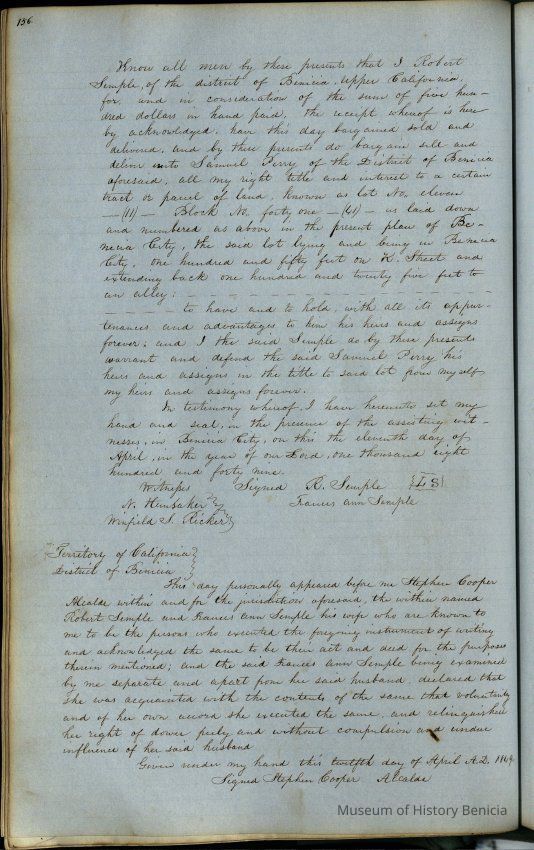 156
Know all men by these presents that I Robert
Semple, of the district of Benicia, Upper California,
for, and in consideration of the sum of five hun-
dred dollars in hand paid, the receipt whereof is here
by acknowledged, have this day bargained sold and
delivered, and by these presents do bargain sell and
deliver unto Samuel Perry of the District of Benicia
aforesaid, all my right title and interest to a certain
tract or parcel of land, known as lot No. eleven
— (11) — Block No. forty one — (41) — as laid down
and numbered as above in the present plan of Be-
nicia City, the said lot lying and being in Benicia
City, one hundred and fifty feet on K. Street and
extending back one hundred and twenty five feet to
an alley:
to have and to hold, with all its appur-
tenances and advantages to him his heirs and assigns
forever; and I the said Semple do by these presents
warrant and defend the said Samuel Perry his
heirs and assigns in the title to said lot from myself
my heirs and assigns forever.
In testimony whereof, I have hereunto set my
hand and seal, in the presence of the assisting wit-
nesses, in Benicia City, on this the eleventh day of
April, in the year of our Lord, one thousand eight
hundred and forty nine.
Witnesses Signed R. Semple {L S}
N. Hunsaker } Frances Ann Semple
Winfield S. Ricker }
Territory of California }
District of Benicia }
This day personally appeared before me Stephen Cooper
Alcalde within and for the jurisdiction aforesaid, the within named
Robert Semple and Frances Ann Semple his wife who are known to
me to be the persons who executed the foregoing instrument of writing
and acknowledged the same to be their act and deed for the purposes
therein mentioned; and the said Frances Ann Semple being examined
by me separate and apart from her said husband, declared that
she was acquainted with the contents of the same that voluntarily
and of her own accord she executed the same, and relinquishes
her right of dower, freely and without compulsion and undue
influence of her said husband
Given under my hand this twelfth day of April A.D. 1849.
Signed Stephen Cooper Alcalde
Museum of History Benicia